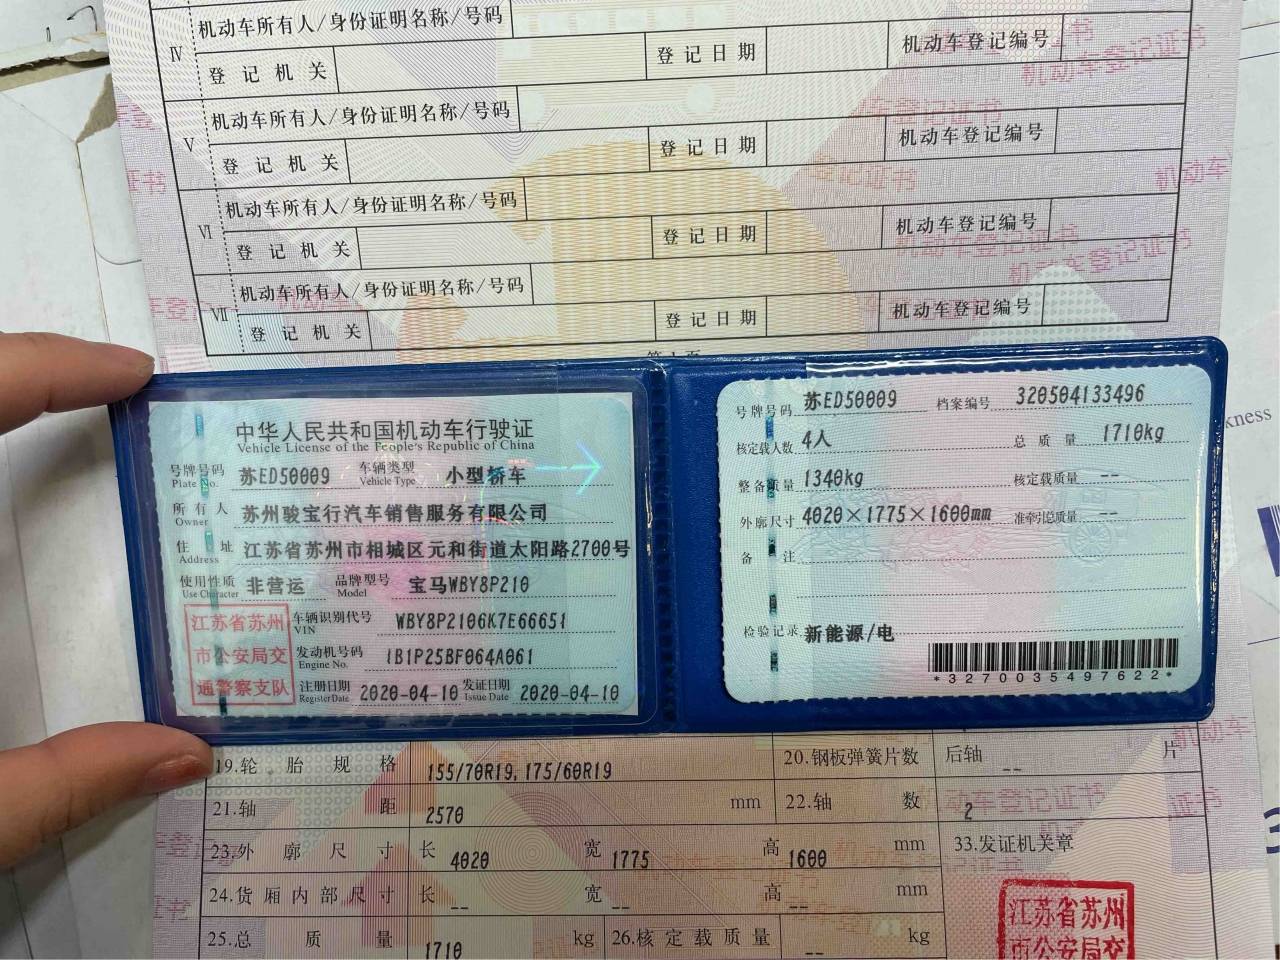 IV 机动车所有人/身份证明名称/号码
登记机关 登记日期 机动车登记编号
V 机动车所有人/身份证明名称/号码
登记机关 登记日期 机动车登记编号
VI 机动车所有人/身份证明名称/号码
登记机关 登记日期 机动车登记编号
VII 机动车所有人/身份证明名称/号码
登记机关 登记日期 机动车登记编号
中华人民共和国机动车行驶证
Vehicle License of the People's Republic of China
号牌号码 苏ED50009 车辆类型 小型轿车
Plate No. Vehicle Type
所有人 苏州骏宝行汽车销售服务有限公司
Owner
住址 江苏省苏州市相城区元和街道太阳路2700号
Address
使用性质 非营运 品牌型号 宝马WBY8P210
Use Character Model
江苏省苏州市公安局交通警察支队
车辆识别代号 WBY8P2106K7E66651
VIN
发动机号码 IB1P25BF064A061
Engine No.
注册日期 2020-04-10 发证日期 2020-04-10
Register Date Issue Date
号牌号码 苏ED50009 档案编号 320504133496
核定载人数 4人 总质量 1710kg
整备质量 1340kg 核定载质量 --
外廓尺寸 4020×1775×1600mm 准牵引总质量 --
备注
检验记录 新能源/电
*3270035497622*
19.轮胎规格 155/70R19,175/60R19 20.钢板弹簧片数 后轴 -- 片
21.轴距 2570 mm 22.轴数 2
23.外廓尺寸 长 4020 宽 1775 高 1600 mm 33.发证机关章
24.货厢内部尺寸 长 -- 宽 -- 高 -- mm
25.总质量 1710 kg 26.核定载质量 -- kg
江苏省苏州
市公安局交
kness